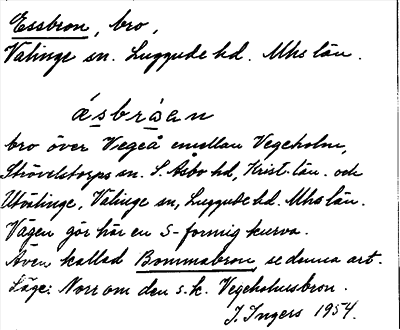 Essbron, bro,
Välinge sn. Luggude hd. Mhs län.
ásbrꜵan
bro över Vegeå emellan Vegeholm,
Strövelstorps sn. S. Åsbo hd, Krist. län. och
Utvälinge, Välinge sn, Luggude hd. Mhs län.
Vägen gör här en S-formig kurva.
Även kallad Bommabron, se denna art.
Läge: Norr om den s.k. Vegeholmsbron.
I. Ingers 1954.